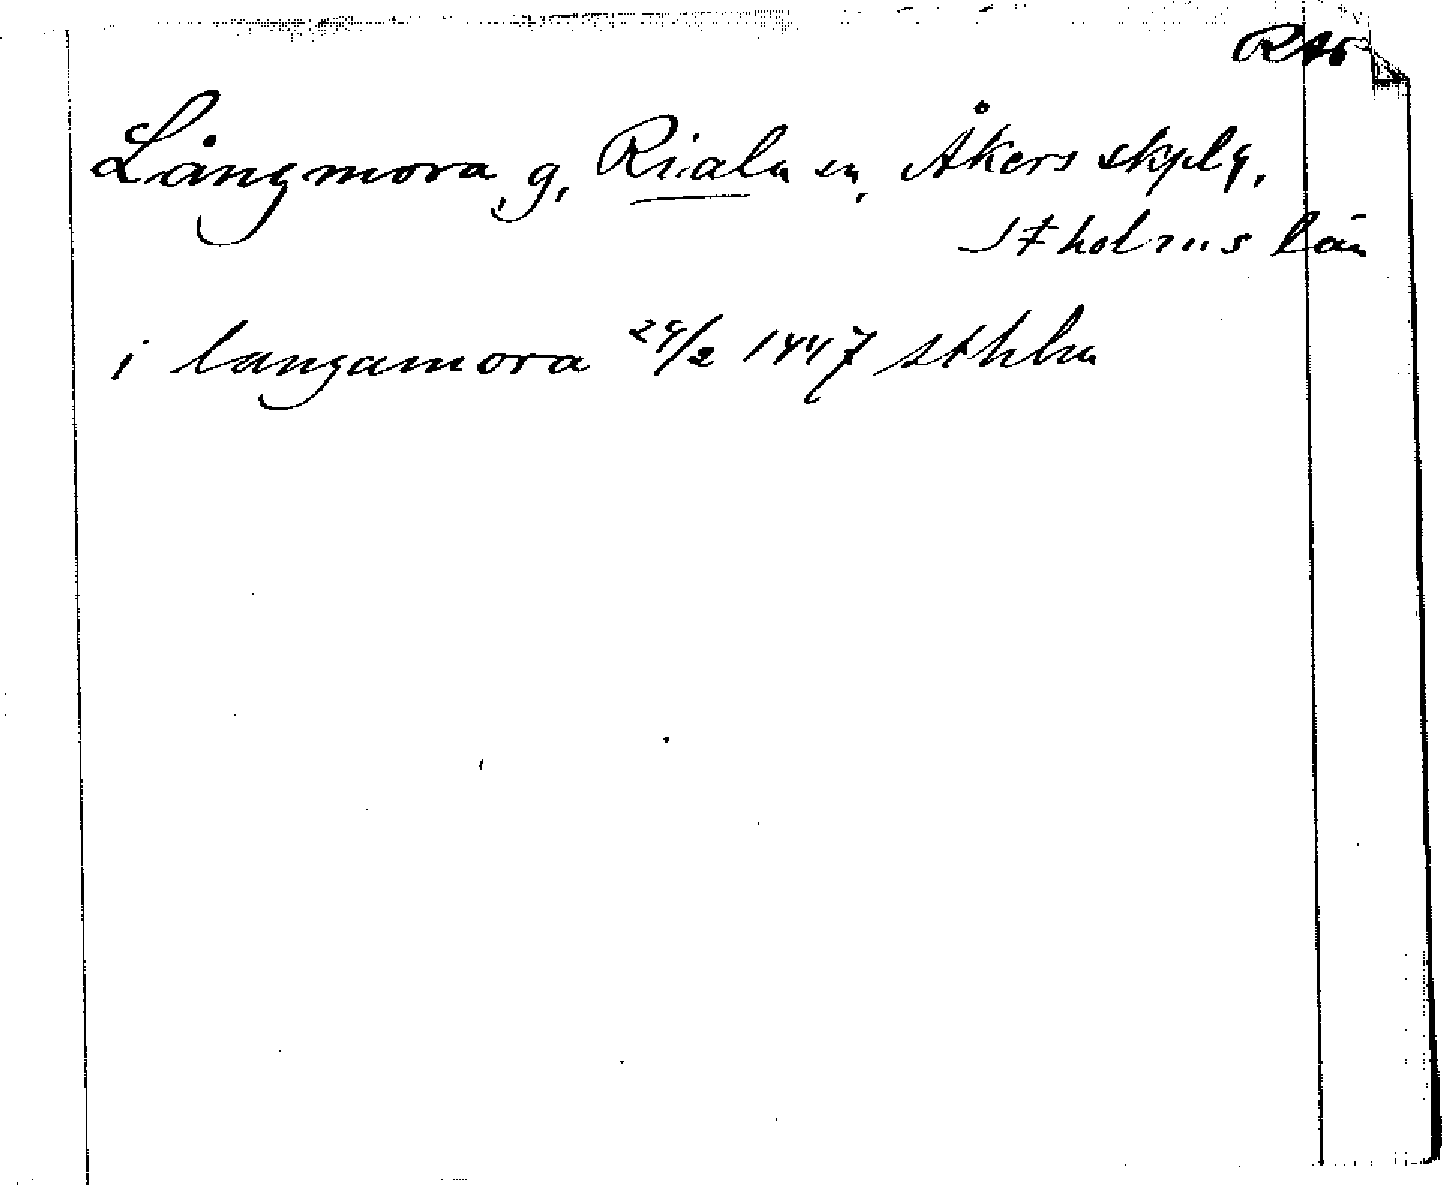 RAö
Långmora, g, Riala sn, Åkers skplg,
Stholms län
i langamora 24/2 1447 sthlm